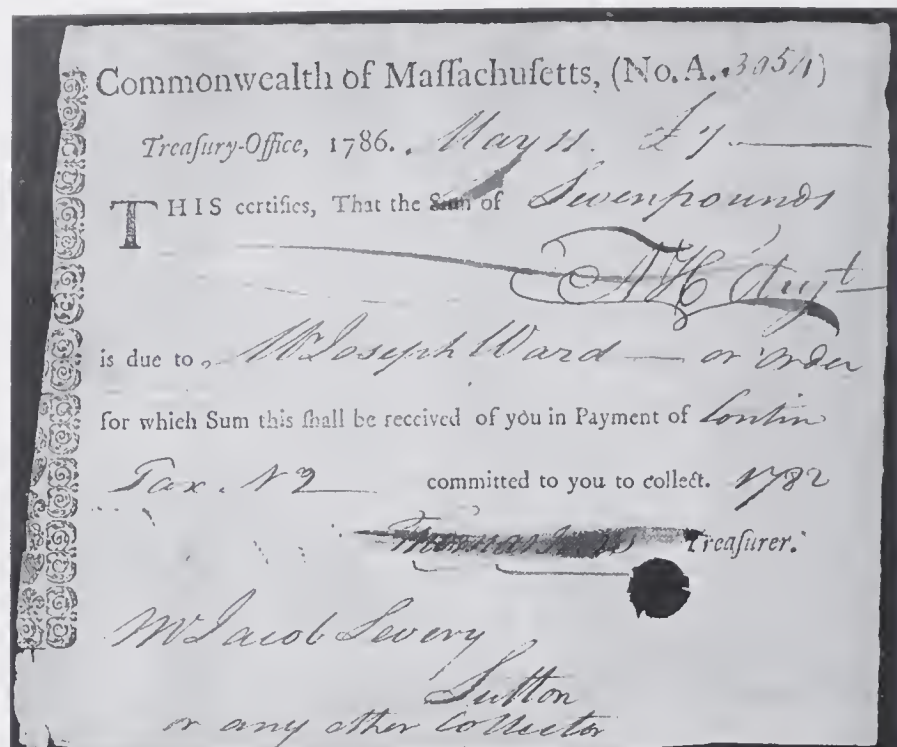 Commonwealth of Maſſachuſetts, (No. A. 3054)
Treaſury-Office, 1786. May 11. £7
THIS certifies, That the Sum of Sevenpounds
is due to, Mr Joseph Ward — or order
for which Sum this ſhall be received of you in Payment of Contin
Tax. N 2 committed to you to collect. 1782
Treaſurer.
Mr Jacob Severy
Sutton
or any other Collector